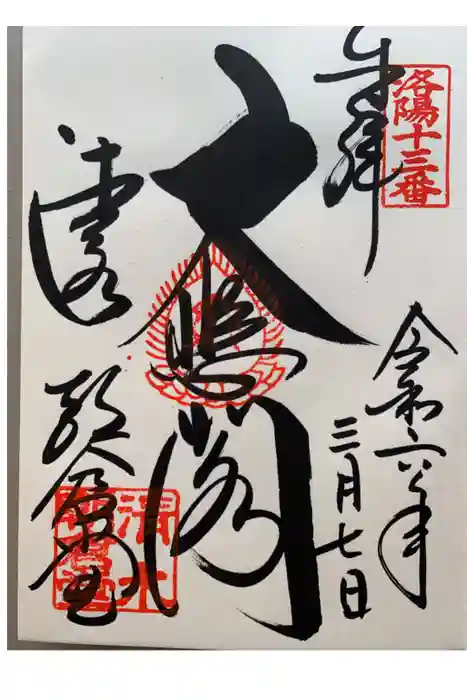 洛陽十三番
奉拝
令和六年
三月七日
大悲閣
清水
朝倉堂
清水